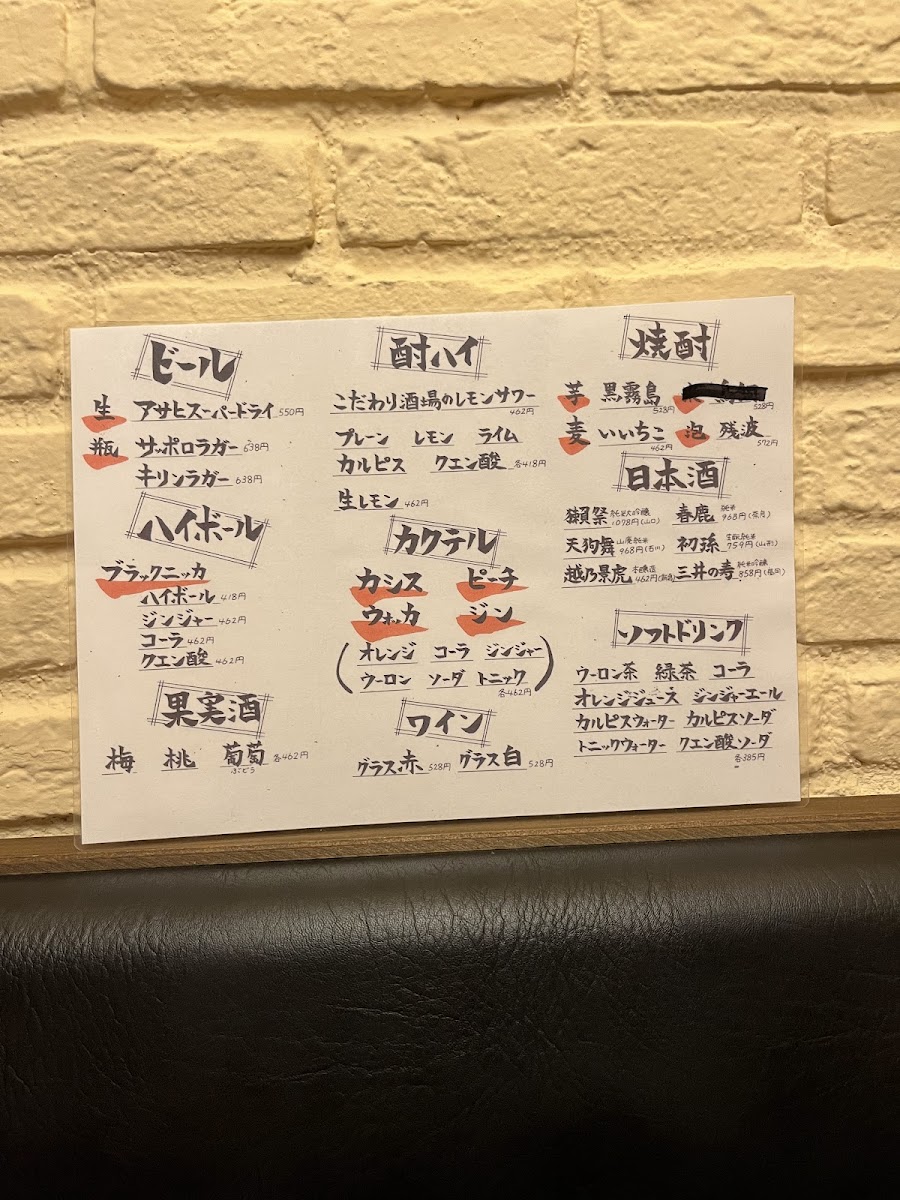 ビール
生 アサヒスーパードライ 550円
瓶 サッポロラガー 638円
キリンラガー 638円
ハイボール
ブラックニッカ
ハイボール 418円
ジンジャー 462円
コーラ 462円
クエン酸 462円
果実酒
梅 桃 葡萄 各462円
ぶどう
酎ハイ
こだわり酒場のレモンサワー
462円
プレーン レモン ライム
カルピス クエン酸 各418円
生レモン 462円
カクテル
カシス ピーチ
ウォッカ ジン
(オレンジ コーラ ジンジャー
ウーロン ソーダ トニック)
各462円
ワイン
グラス赤 528円 グラス白 528円
焼酎
芋 黒霧島 528円
528円
麦 いいちこ 462円 泡 残波 572円
日本酒
獺祭 純米大吟醸 1078円(山口) 春鹿 純米 968円(奈良)
天狗舞 山廃純米 968円(石川) 初孫 生酛純米 759円(山形)
越乃景虎 本醸造 462円(新潟) 三井の寿 純米吟醸 858円(福岡)
ソフトドリンク
ウーロン茶 緑茶 コーラ
オレンジジュース ジンジャーエール
カルピスウォーター カルピスソーダ
トニックウォーター クエン酸ソーダ
各385円